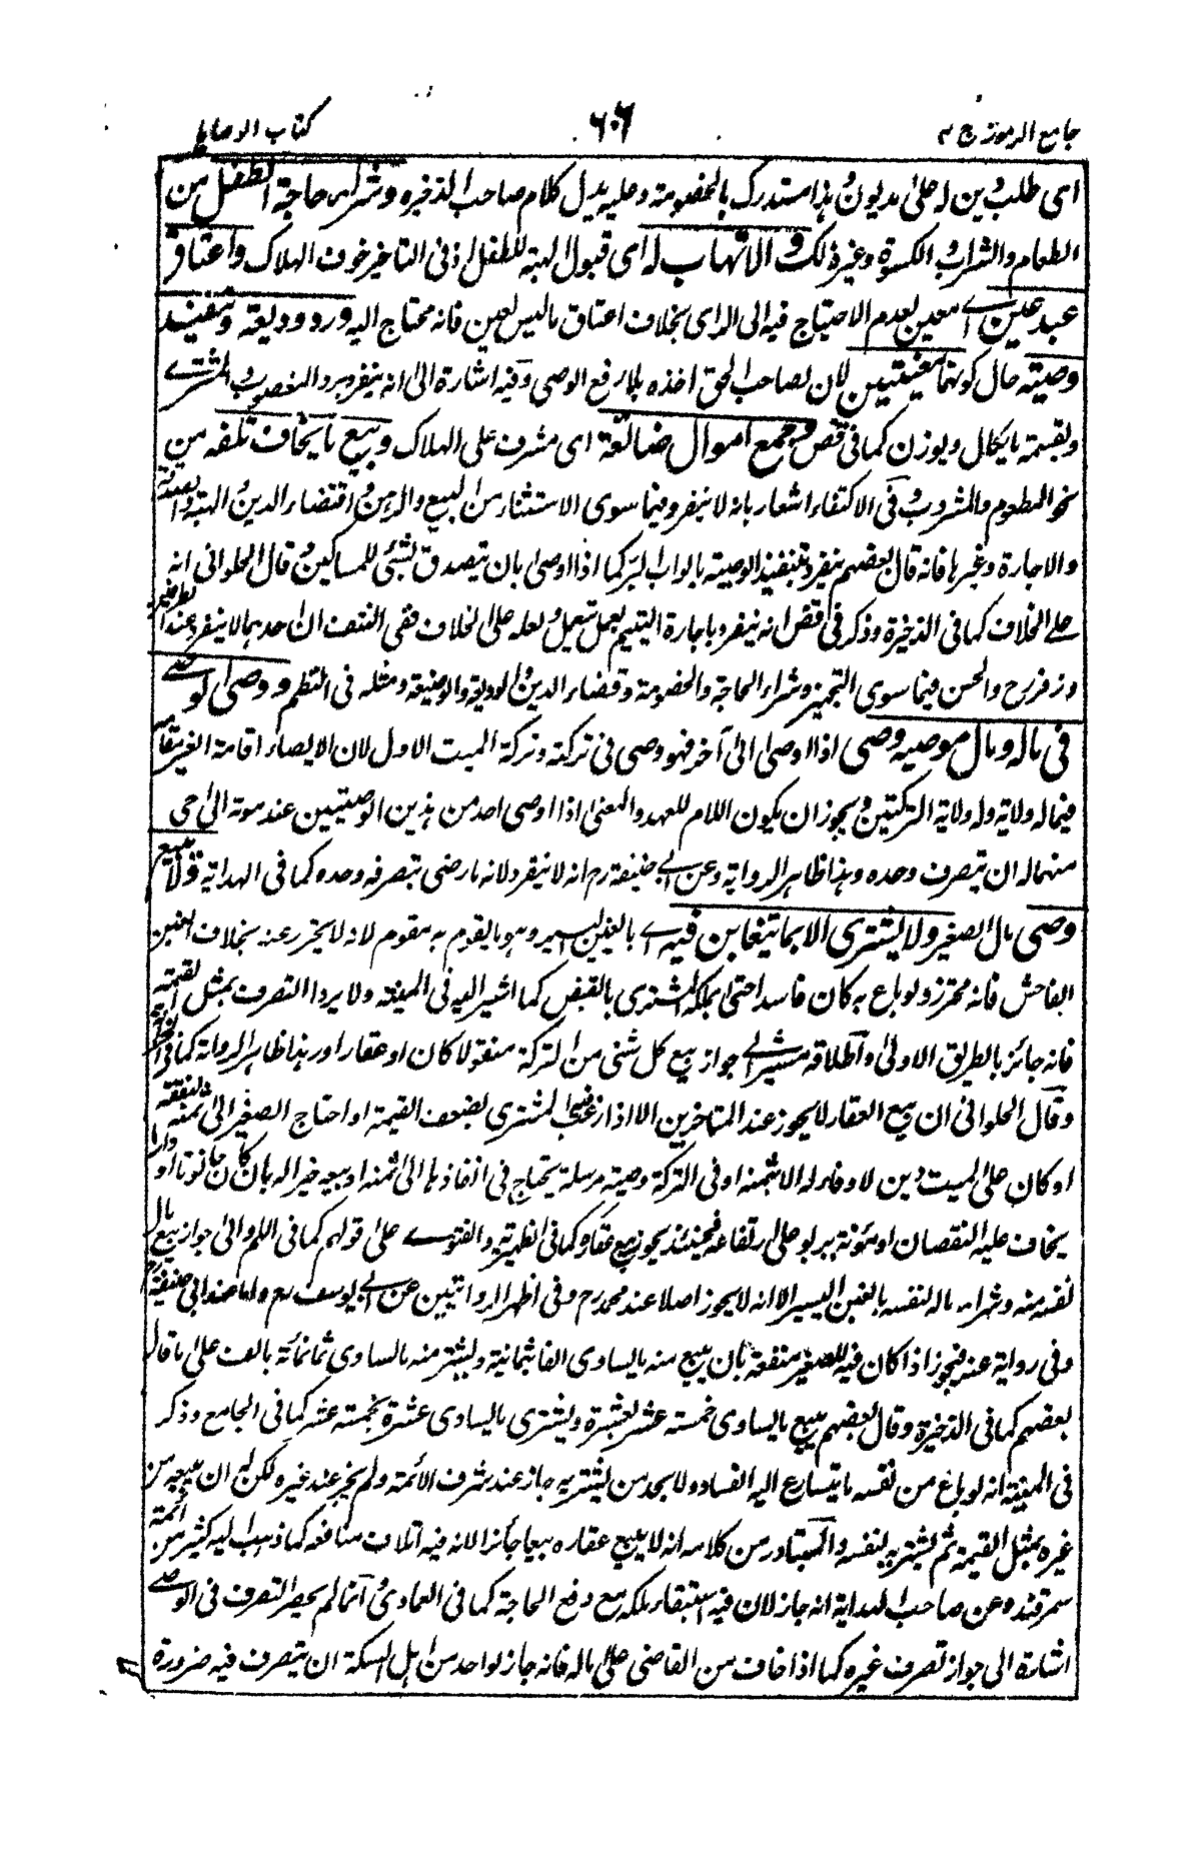 جامع الرموز ج ٢
٦٠٦
كتاب الوصايا
اى طلب دين له على مديون هذا مستدرك بالخصومة وعليه يدل كلام صاحب الذخيره وشراء حاجة الطفل من
الطعام والشراب والكسوة وغير ذلك والاتهاب له اى قبول الهبة للطفل اذ فى التاخير خوف الهلاك واعتاق
عبد عين اى معين لعدم الاحتياج فيه الى الراى بخلاف اعتاق ما ليس بعين فانه محتاج اليه ورد وديعة وتنفيذ
وصيته حال كونهما معينتين لان لصاحب الحق اخذه بلا رفع الوصى وفيه اشارة الى انه ينفرد برد المغصوب والمشترى
وبقسمة ما يكال ويوزن كما فى قض وجمع اموال ضائعة اى مشرف على الهلاك وبيع ما يخاف تلفه من
نحو المطعوم والمشروب فى الاكتفاء اشعار بانه لا ينفرد فيما سوى الاستثناء من البيع والرهن واقتضاء الدين والهبة
والاجارة وغيرها فانه قال بعضهم ينفرد بتنفيذ الوصية بابواب البر كما اذا اوصى بان يتصدق بشئ للمساكين وقال الحلوانى انه
على الخلاف كما فى الذخيرة وذكر فى قض انه ينفرد باجارة اليتيم لعمل يعمل ولعله على الخلاف ففى النتف ان احدهما لا ينفرد عند
وزفر رح والحسن فيما سوى التجهيز وشراء الحاجة والخصومة وقضاء الدين والوديعة والوصية ومثله فى النظم ووصى الوصى
فى ماله ومال موصيه وصى اذا اوصى الى آخر فهو وصى فى تركته وتركة الميت الاول لان الايصاء اقامة الغير مقامه
فيما له ولاية وله ولاية التركتين ويجوز ان يكون اللام للعهد والمعنى اذا اوصى احد من هذين الوصيين عند موته الى حى
منهما له ان يتصرف وحده وهذا ظاهر الرواية وعن ابى حنيفة رم انه لا ينفرد لانه ما رضى بتصرفه وحده كما فى الهداية ولا يبيع
وصى مال الصغير ولا يشترى الا بما يتغابن فيه اى بالغبن اليسير وهو ما يقوم به مقوم لانه لا يتحرز عنه بخلاف الغبن
الفاحش فانه محترز ولو باع به كان فاسدا حتى يملكه المشترى بالقبض كما اشير اليه فى المغنية ولا يرد التصرف بمثل القيمة
فانه جائز بالطريق الاولى واطلاقه مشير الى جواز بيع كل شئ من التركة منقولا كان او عقارا وهذا ظاهر الرواية كما فى
وقال الحلوانى ان بيع العقار لا يجوز عند المتاخرين الا اذا رغب المشترى بضعف القيمة او احتاج الصغير الى ثمنه للنفقة
او كان على الميت دين لا وفاء له الا بثمنه او فى التركة وصية مرسلة يحتاج فى انفاذها الى ثمنه او بيعه خير له بان كان حانوتا او دارا
يخاف عليه النقصان او مئونة يربو على ارتفاعه فحينئذ يجوز بيع عقاره كما فى الظهيرية والفتوى على قولهم كما فى اللم والى جواز بيع مال
نفسه منه وشراء ماله لنفسه بالغبن اليسير الا انه لا يجوز اصلا عند محمد رح وفى اظهر الروايتين عن ابى يوسف رح واما عند ابى حنيفة
وفى رواية عنه فيجوز اذا كان فيه للصغير منفعة بان يبيع منه ما يساوى الفا بثمانية ويشتر منه ما يساوى ثمانمائة بالف على ما قال
بعضهم كما فى الذخيرة وقال بعضهم يبيع ما يساوى خمسة عشر بعشرة ويشترى ما يساوى عشرة بخمسة عشر كما فى الجامع وذكر
فى المغنية انه لو باع من نفسه ما يتسارع اليه الفساد ولا يجد من يشتريه جاز عند شرف الائمة ولم يجز عند غيره لكن له ان يبيعه من
غيره بمثل القيمة ثم يشتريه لنفسه والمتبادر من كلامه انه لا يبيع عقاره بيعا جائزا لانه فيه اتلاف منافعه كما ذهب اليه كثير من ائمة
سمرقند وعن صاحب الهداية انه جاز لان فيه استبقاء ملكه مع دفع الحاجة كما فى العمادى وانما لم يحصر التصرف فى الوصى
اشارة الى جواز تصرف غيره كما اذا خاف من القاضى على ماله فانه جاز لواحد من اهل السكة ان يتصرف فيه ضرورة